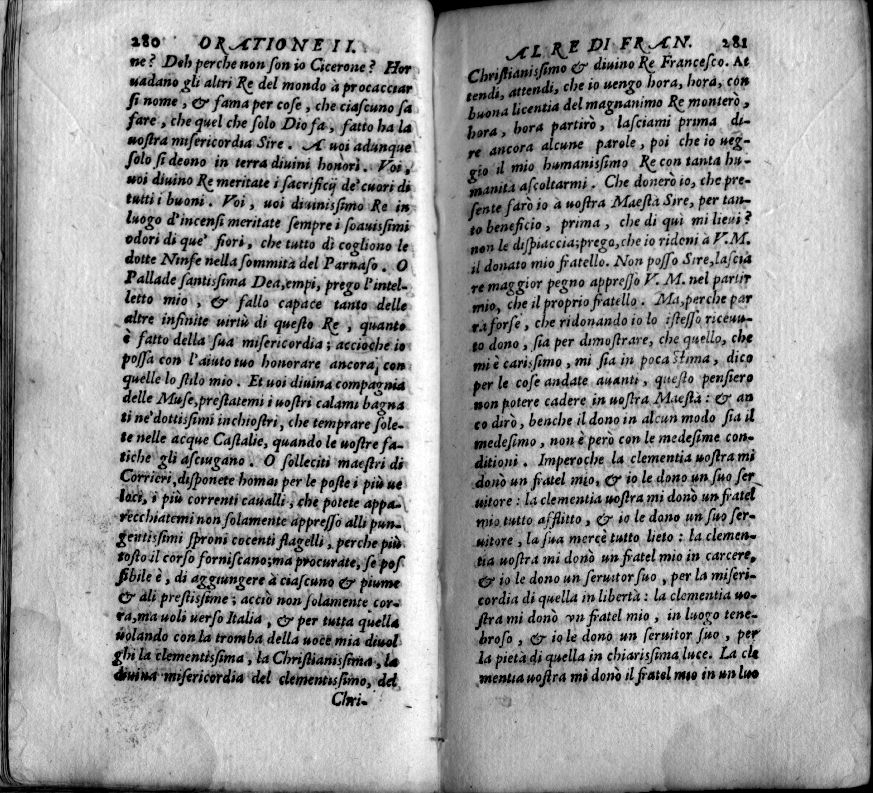 280 ORATIONE II.
ne? Deh perche non son io Cicerone? Hor
uadano gli altri Re del mondo à procacciar
si nome, & fama per cose, che ciascuno sa
fare, che quel che solo Dio fa, fatto ha la
uostra misericordia Sire. A uoi adunque
solo si deono in terra diuini honori. Voi,
uoi diuino Re meritate i sacrificij de' cuori di
tutti i buoni. Voi, uoi diuinissimo Re in
luogo d'incensi meritate sempre i soauissimi
odori di que' fiori, che tutto dì cogliono le
dotte Ninfe nella sommità del Parnaso. O
Pallade santissima Dea, empi, prego l'intel-
letto mio, & fallo capace tanto delle
altre infinite uirtù di questo Re, quanto
è fatto della sua misericordia; accioche io
possa con l'aiuto tuo honorare ancora, con
quelle lo stilo mio. Et uoi diuina compagnia
delle Muse, prestatemi i uostri calami bagna
ti ne' dottissimi inchiostri, che temprare sole-
te nelle acque Castalie, quando le uostre fa-
tiche gli asciugano. O solleciti maestri di
Corrieri, disponete homai per le poste i più ue
loci, i più correnti caualli, che potete appa-
recchiatemi non solamente appresso alli pun-
gentissimi sproni cocenti flagelli, perche più
tosto il corso forniscano; ma procurate, se pos
sibile è, di aggiungere à ciascuno & piume
& ali prestissime; acciò non solamente cor-
ra, ma uoli uerso Italia, & per tutta quella
uolando con la tromba della uoce mia diuol
ghi la clementissima, la Christianissima, la
diuina misericordia del clementissimo, del
Chri-
AL RE DI FRAN. 281
Christianissimo & diuino Re Francesco. At
tendi, attendi, che io uengo hora, hora, con
buona licentia del magnanimo Re monterò,
hora, hora partirò, lasciami prima di-
re ancora alcune parole, poi che io ueg-
gio il mio humanissimo Re con tanta hu-
manità ascoltarmi. Che donerò io, che pre-
sente farò io à uostra Maestà Sire, per tan-
to beneficio, prima, che di quì mi lieui?
non le dispiaccia; prego, che io ridoni à V. M.
il donato mio fratello. Non posso Sire, lascia
re maggior pegno appresso V. M. nel partir
mio, che il proprio fratello. Ma, perche par
rà forse, che ridonando io lo istesso riceuu-
to dono, sia per dimostrare, che quello, che
mi è carissimo, mi sia in poca stima, dico
per le cose andate auanti, questo pensiero
non potere cadere in uostra Maestà: & an
co dirò, benche il dono in alcun modo sia il
medesimo, non è però con le medesime con-
ditioni. Imperoche la clementia uostra mi
donò un fratel mio, & io le dono un suo ser
uitore: la clementia uostra mi donò un fratel
mio tutto afflitto, & io le dono un suo ser-
uitore, la sua mercè tutto lieto: la clemen-
tia uostra mi donò un fratel mio in carcere,
& io le dono un seruitor suo, per la miseri-
cordia di quella in libertà: la clementia uo-
stra mi donò vn fratel mio, in luogo tene-
broso, & io le dono un seruitor suo, per
la pietà di quella in chiarissima luce. La cle
mentia uostra mi donò il fratel mio in un luo